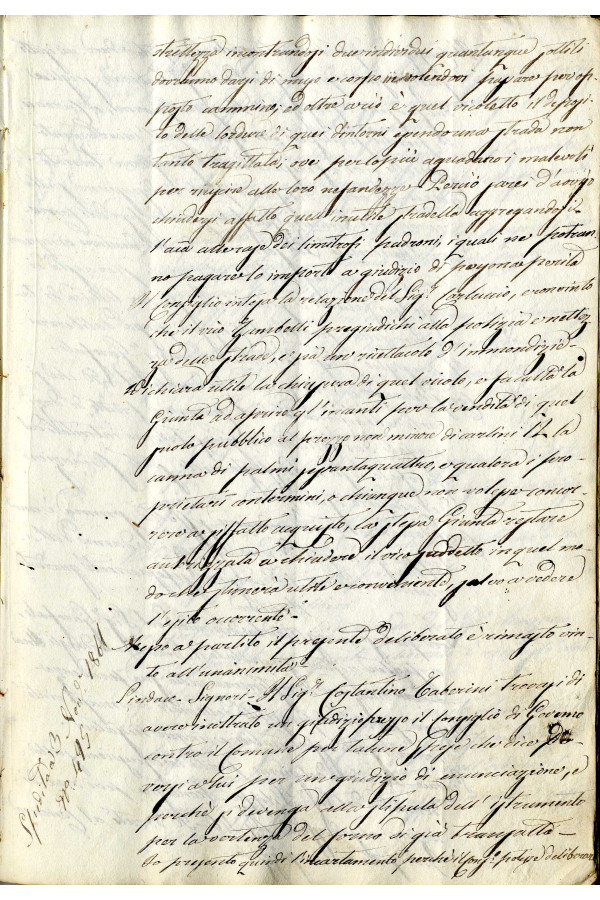 strettezza incontrandosi due individui quantunque pollili
dovranno darsi di muso e corpo involendosi passare per op-
posto cammino; ed oltre a ciò è quel vicoletto il deposi-
to delle lordure di quei dintorni essendo una strada non
tanto tragittata; ove per lo più aguadano i malevoli
per riuscire alle loro nefandezze. Perciò paresi d'avviso
chiudersi affatto quell'inutile stradella aggregandosi
l'aia alle case dei limitrofi padroni, i quali ne potran-
no pagare lo importo a giudizio di persona perita
Il Consiglio intesa la relazione del Sig.r Carluccio, e convinto
che il vico Zambelli pregiudichi alla polizia e nettez-
za delle strade, e già un ricettacolo d'immondizie -
Dichiara utile la chiusura di quel vicolo, e facultà la
Giunta ad aprire gl'incanti per la vendita di quel
suolo pubblico al prezzo non minore di carlini 12 la
canna di palmi sessantaquattro, e qualora i pro-
prietarii contermini, o chiunque non volesse concor-
rere a siffatto acquisto, la stessa Giunta restare
autorizzata a chiudere il vico suddetto in quel mo-
do che stimerà utile e conveniente, salvo a vedere
l'esito occorrente -
Messo a partito il presente deliberato è rimasto vin-
to all'unanimità -
Sindaco - Signori - Il Sig.r Costantino Taberini trovasi di
avere inoltrato un giudizio presso il Consiglio di Governo
contro il Comune per talune spese che dice do-
versi a lui per un giudizio di enunciazione, e
perchè si divenga alla stipula dell'istrumento
per la vertenza del forno di già transatta -
Io presento quindi l'incartamento perchè il Cons.o potesse deliberare
Spedita a 13 Nov.e 1861
N.o 495